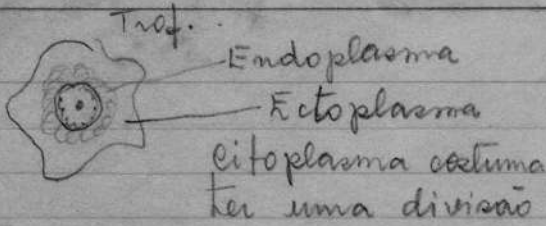 Trof.
Endoplasma
Ectoplasma
Citoplasma costuma
ter uma divisão